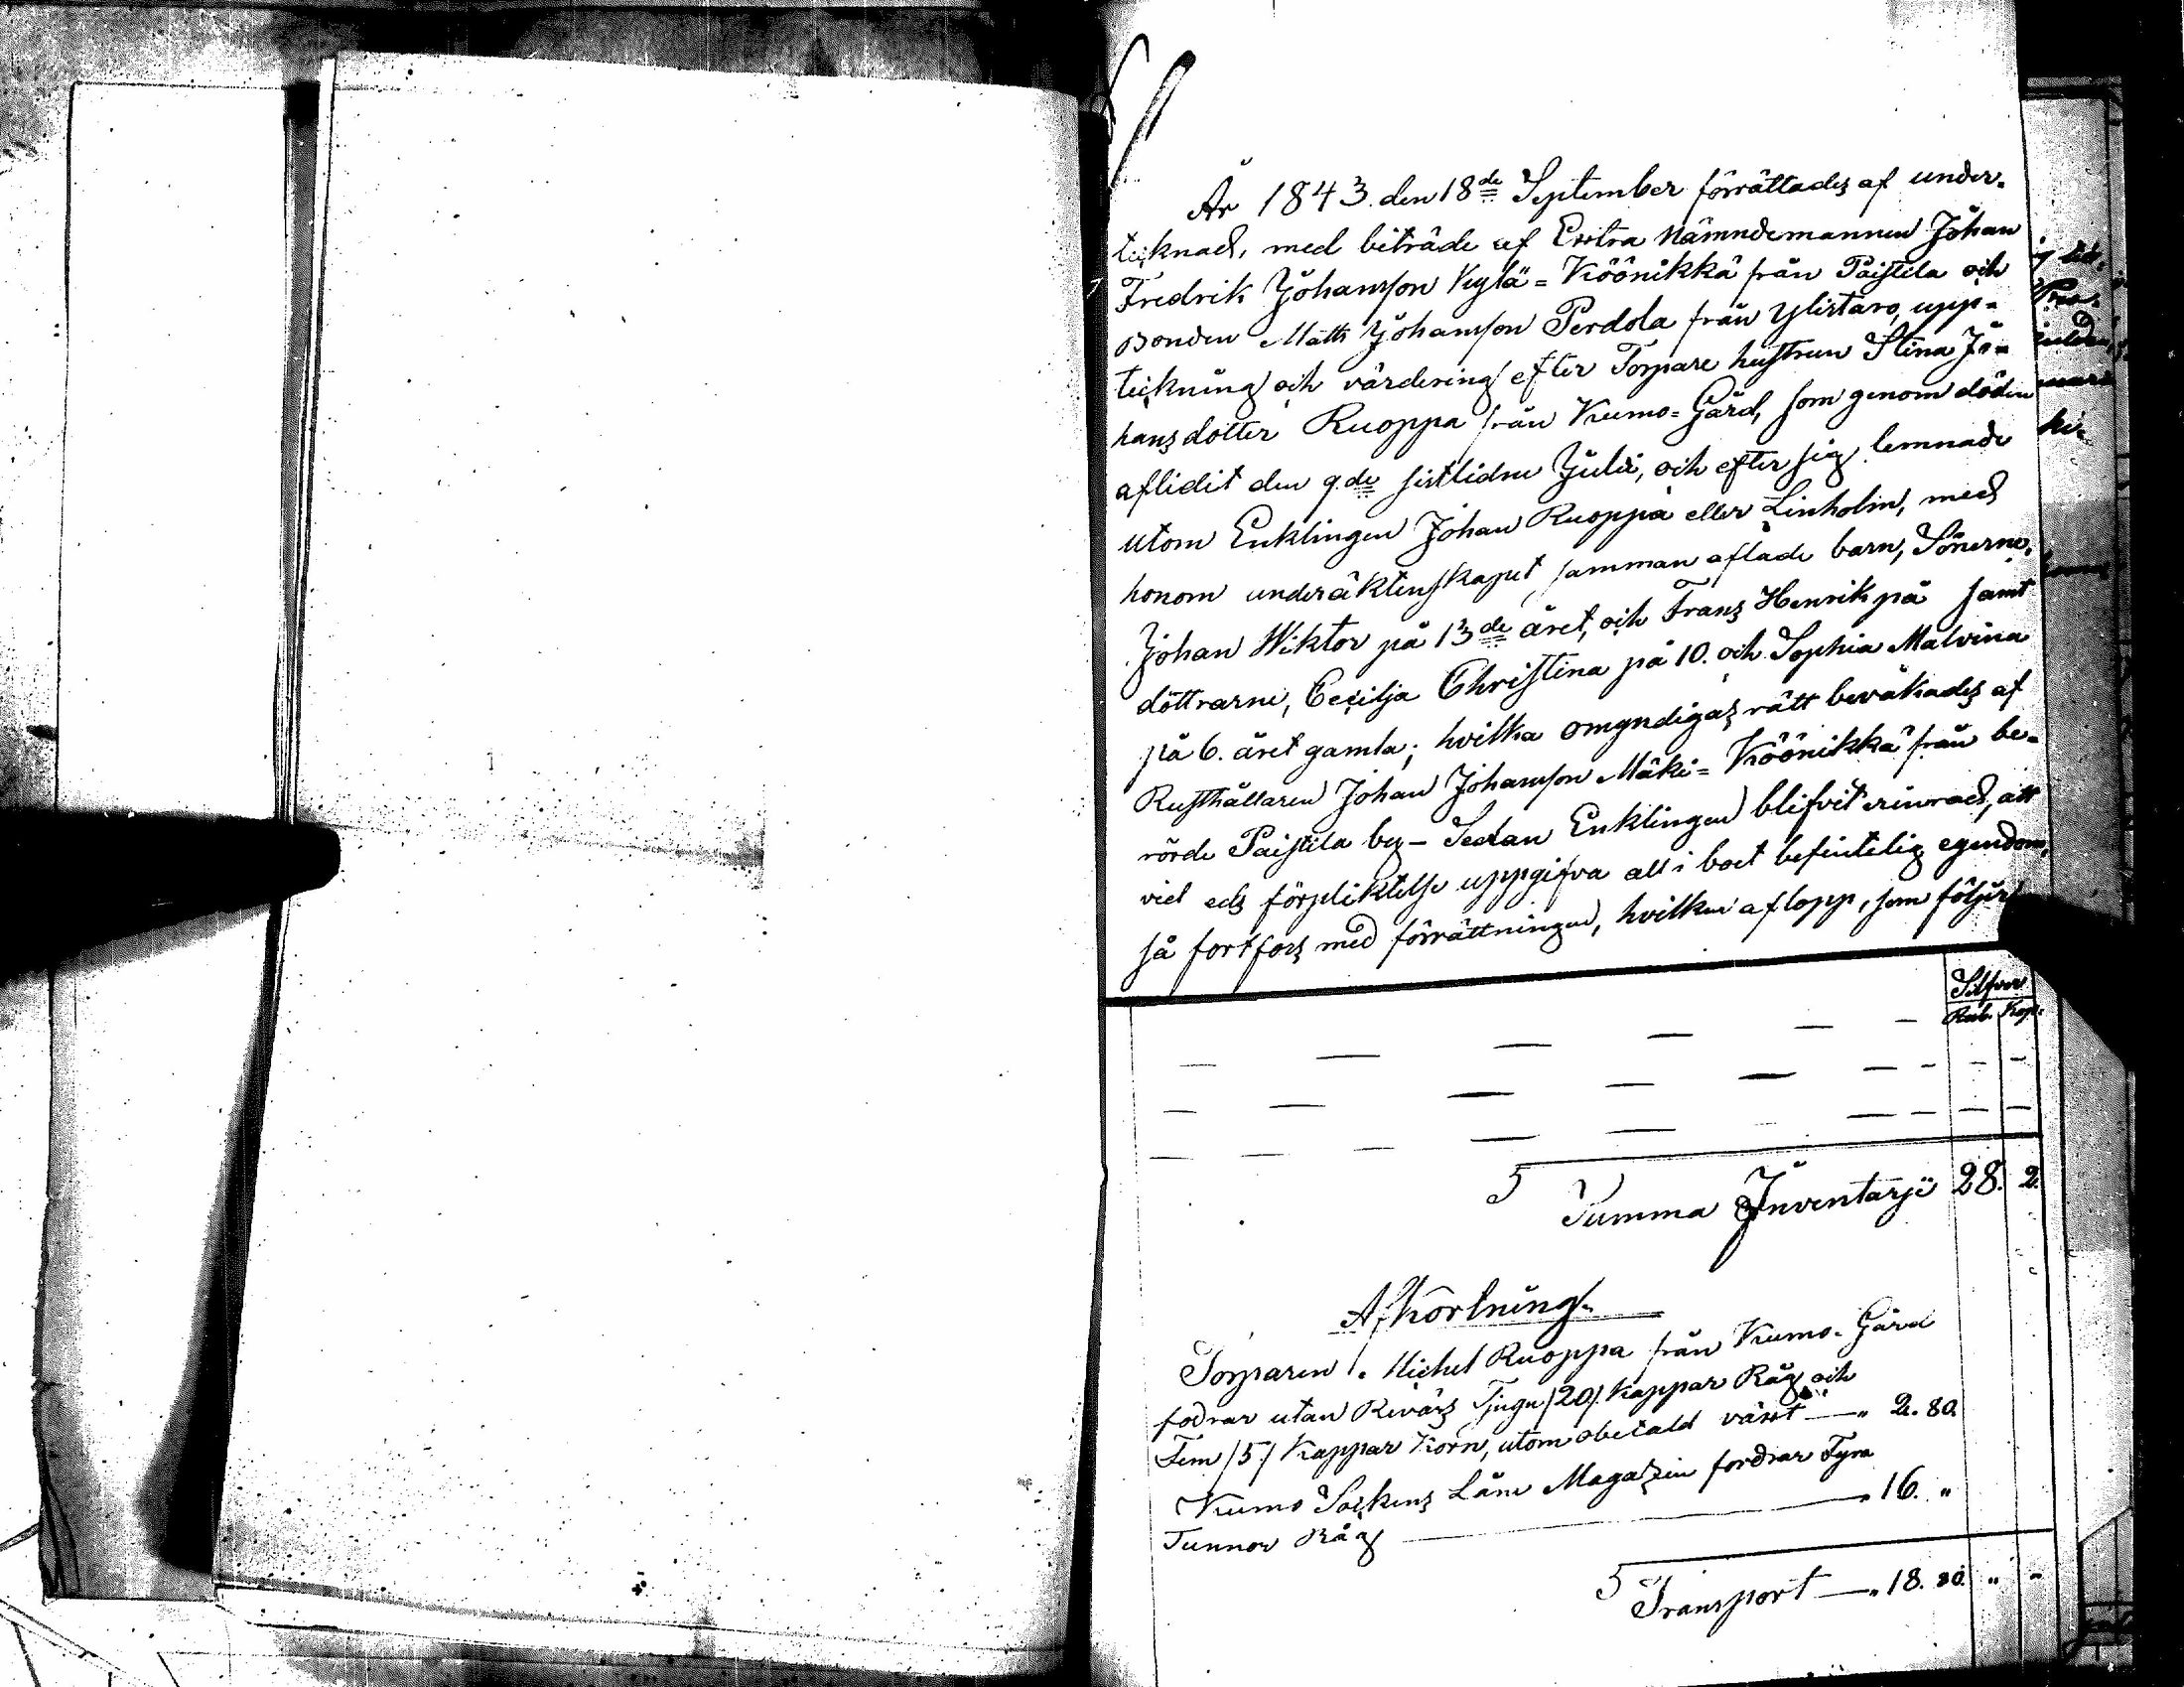 År 1843. den 18de September förrättades af under-
tecknad, med biträde af Extra Nämndemannen Johan
Fredrik Johansson Kylä=Köönikkä från Paistila och
Bonden Matts Johansson Perdola från Ylistaro, upp-
teckning och värdering efter Torpare hustrun Stina Jo-
hansdotter Ruoppa från Kumo=Gård, som genom döden
aflidit den 9.de sistlidne Julii, och efter sig lemnade
utom Enklingen Johan Ruoppa eller Linholm, med
honom under äktenskapet samman aflade barn, Sönerne,
Johan Wiktor på 13de året, och Frans Henrik på samt
döttrarne, Cecilja Christina på 10. och Sophia Malvina
på 6. året gamla; hvilka omyndigas rätt bevakades af
Rusthållaren Johan Johansson Mäki=Köönikkä från be-
rörde Paistila by – Sedan Enklingen blifvit erinrad, att
vid eds förpliktelse uppgifva all i boet befintelig egendom,
så fortfors med förrättningen, hvilken aflopp, som följer
Silfver
Rub. Kop.
Summa Inventarje 28. 2.
Afkortning.
Torparen Michel Ruoppa från Kumo-Gård
fodrar utan Revärs Tjugu /20/ Kappar Råg och
Fem /5/ Kappar Korn, utom obetald växt — " 2. 80.
Kumo Sockens Låne Magazin fordrar Fyra
Tunnor Råg — " 16. "
Transport — " 18. 80. " -